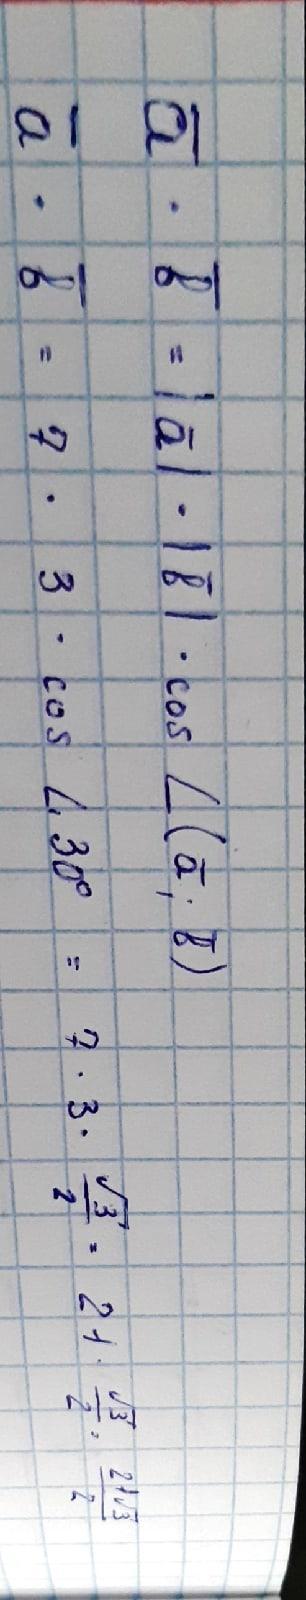 a̅ · b̅ = |a̅| · |b̅| · cos ∠(a̅; b̅)
a̅ · b̅ = 7 · 3 · cos ∠30° = 7 · 3 · √3/2 = 21 · √3/2 = 21√3/2